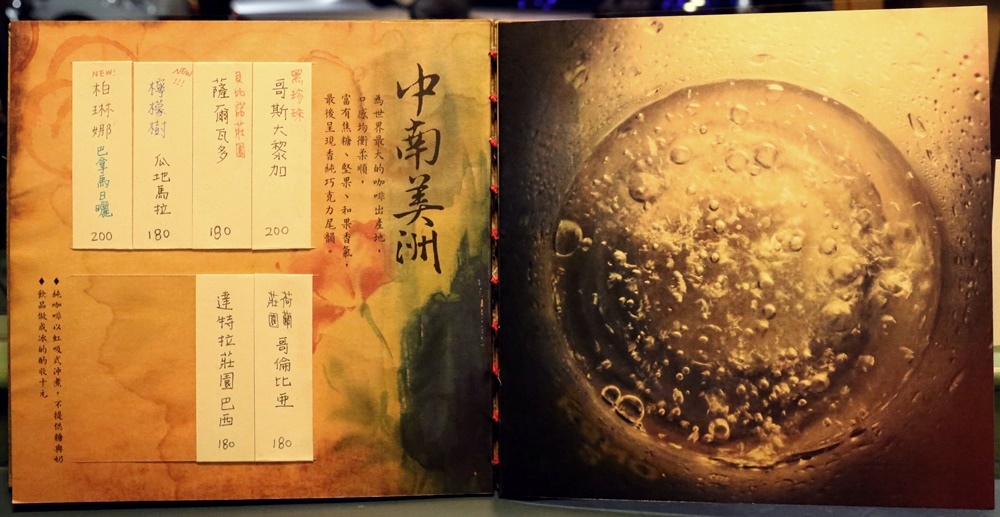 中南美洲
為世界最大的咖啡出產地，
口感均衡柔順，
富有焦糖、堅果、和果香氣，
最後呈現香純巧克力尾韻。
黑珍珠
哥斯大黎加
200
薩爾瓦多
180
NEW!!!
檸檬樹 瓜地馬拉
180
NEW!
柏琳娜 巴拿馬日曬
200
荷蘭莊園 哥倫比亞
180
達特拉莊園 巴西
180
♦純咖啡以虹吸式沖煮，不提供糖與奶
♦飲品做成冰的酌收十元